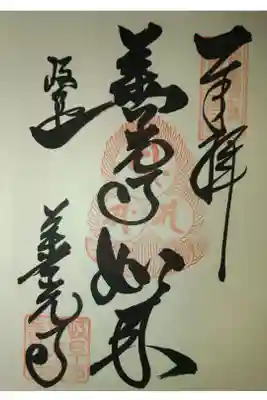 奉拝
善光寺如来
岐阜
善光寺